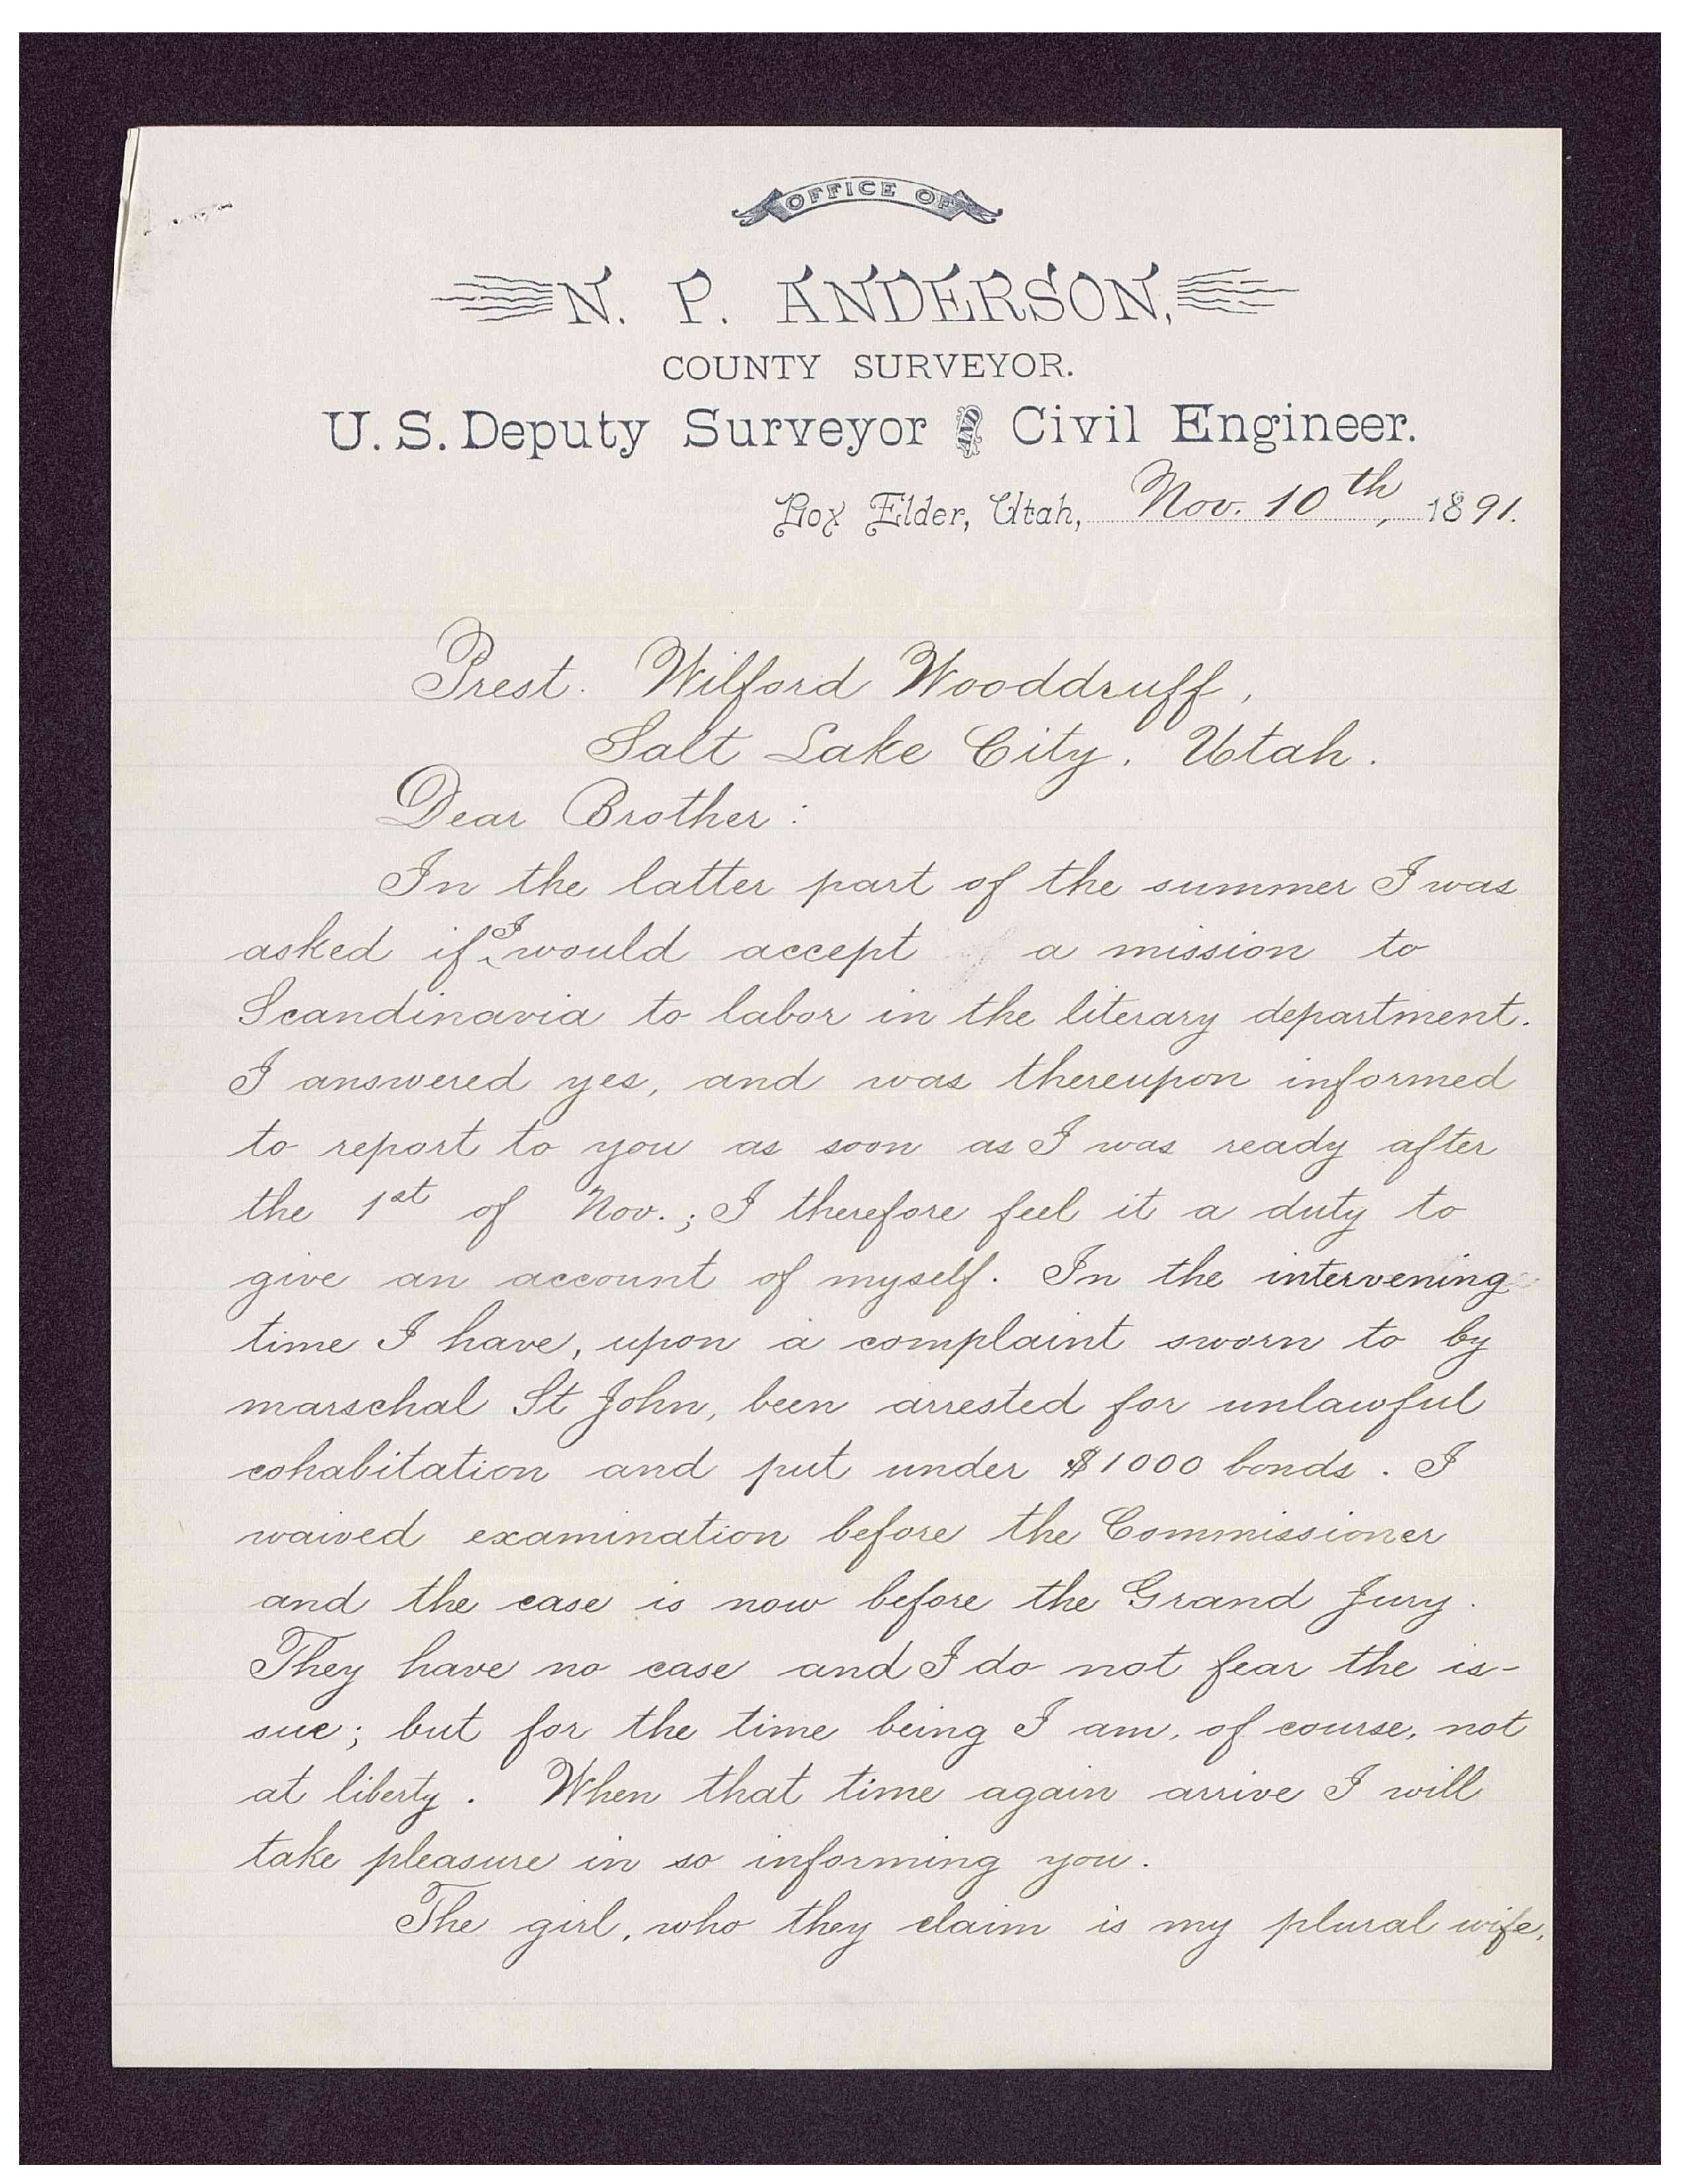 OFFICE OF
N. P. ANDERSON,
COUNTY SURVEYOR.
U.S. Deputy Surveyor AND Civil Engineer.
Box Elder, Utah, Nov. 10th, 1891.
Prest. Wilford Wooddruff,
Salt Lake City, Utah.
Dear Brother:
In the latter part of the summer I was
asked if I would accept a mission to
Scandinavia to labor in the literary department.
I answered yes, and was thereupon informed
to report to you as soon as I was ready after
the 1st of Nov.; I therefore feel it a duty to
give an account of myself. In the intervening
time I have, upon a complaint sworn to by
marschal St John, been arrested for unlawful
cohabitation and put under $1000 bonds. I
waived examination before the Commissioner
and the case is now before the Grand Jury.
They have no case and I do not fear the is-
sue; but for the time being I am, of course, not
at liberty. When that time again arrive I will
take pleasure in so informing you.
The girl, who they claim is my plural wife,